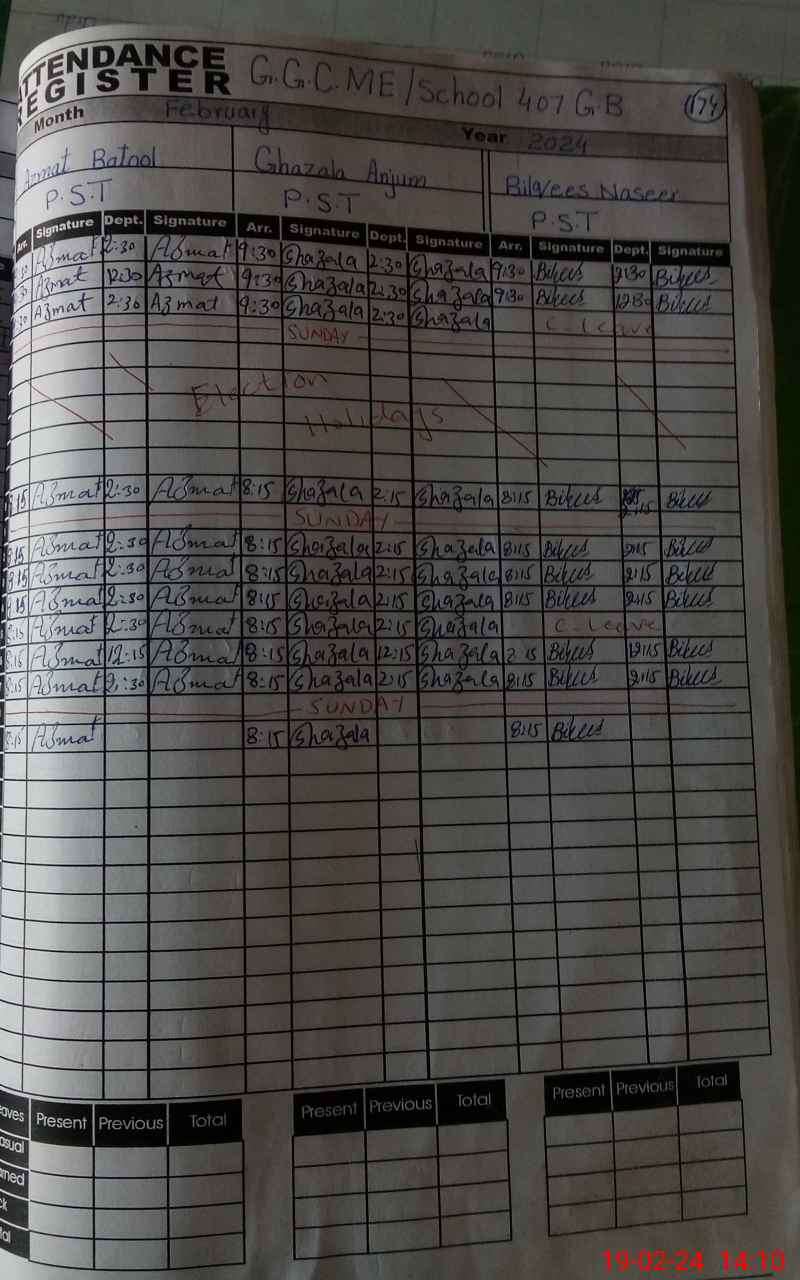 ATTENDANCE
REGISTER G.G.C.ME/School 407 G.B 174
Month February Year 2024
Azmat Batool Ghazala Anjum Bilqees Naseer
P.S.T P.S.T P.S.T
Arr. Signature Dept. Signature Arr. Signature Dept. Signature Arr. Signature Dept. Signature
Azmat 2:30 Azmat 9:30 Ghazala 2:30 Ghazala 9:30 Bilqees 2:30 Bilqees
Azmat 12:30 Azmat 9:30 Ghazala 2:30 Ghazala 9:30 Bilqees 12:30 Bilqees
Azmat 2:30 Azmat 9:30 Ghazala 2:30 Ghazala C-leave
SUNDAY
Election
Holidays
8:15 Azmat 2:30 Azmat 8:15 Ghazala 2:15 Ghazala 8:15 Bilqees 2:15 Bilqees
SUNDAY
8:15 Azmat 2:30 Azmat 8:15 Ghazala 2:15 Ghazala 8:15 Bilqees 2:15 Bilqees
8:15 Azmat 2:30 Azmat 8:15 Ghazala 2:15 Ghazala 8:15 Bilqees 2:15 Bilqees
8:15 Azmat 2:30 Azmat 8:15 Ghazala 2:15 Ghazala 8:15 Bilqees 2:15 Bilqees
8:15 Azmat 2:30 Azmat 8:15 Ghazala 2:15 Ghazala C-leave
8:15 Azmat 12:15 Azmat 8:15 Ghazala 12:15 Ghazala Bilqees 12:15 Bilqees
8:15 Azmat 2:30 Azmat 8:15 Ghazala 2:15 Ghazala 8:15 Bilqees 2:15 Bilqees
SUNDAY
8:15 Azmat 8:15 Ghazala 8:15 Bilqees
Present Previous Total Present Previous Total Present Previous Total
19-02-24 14:10